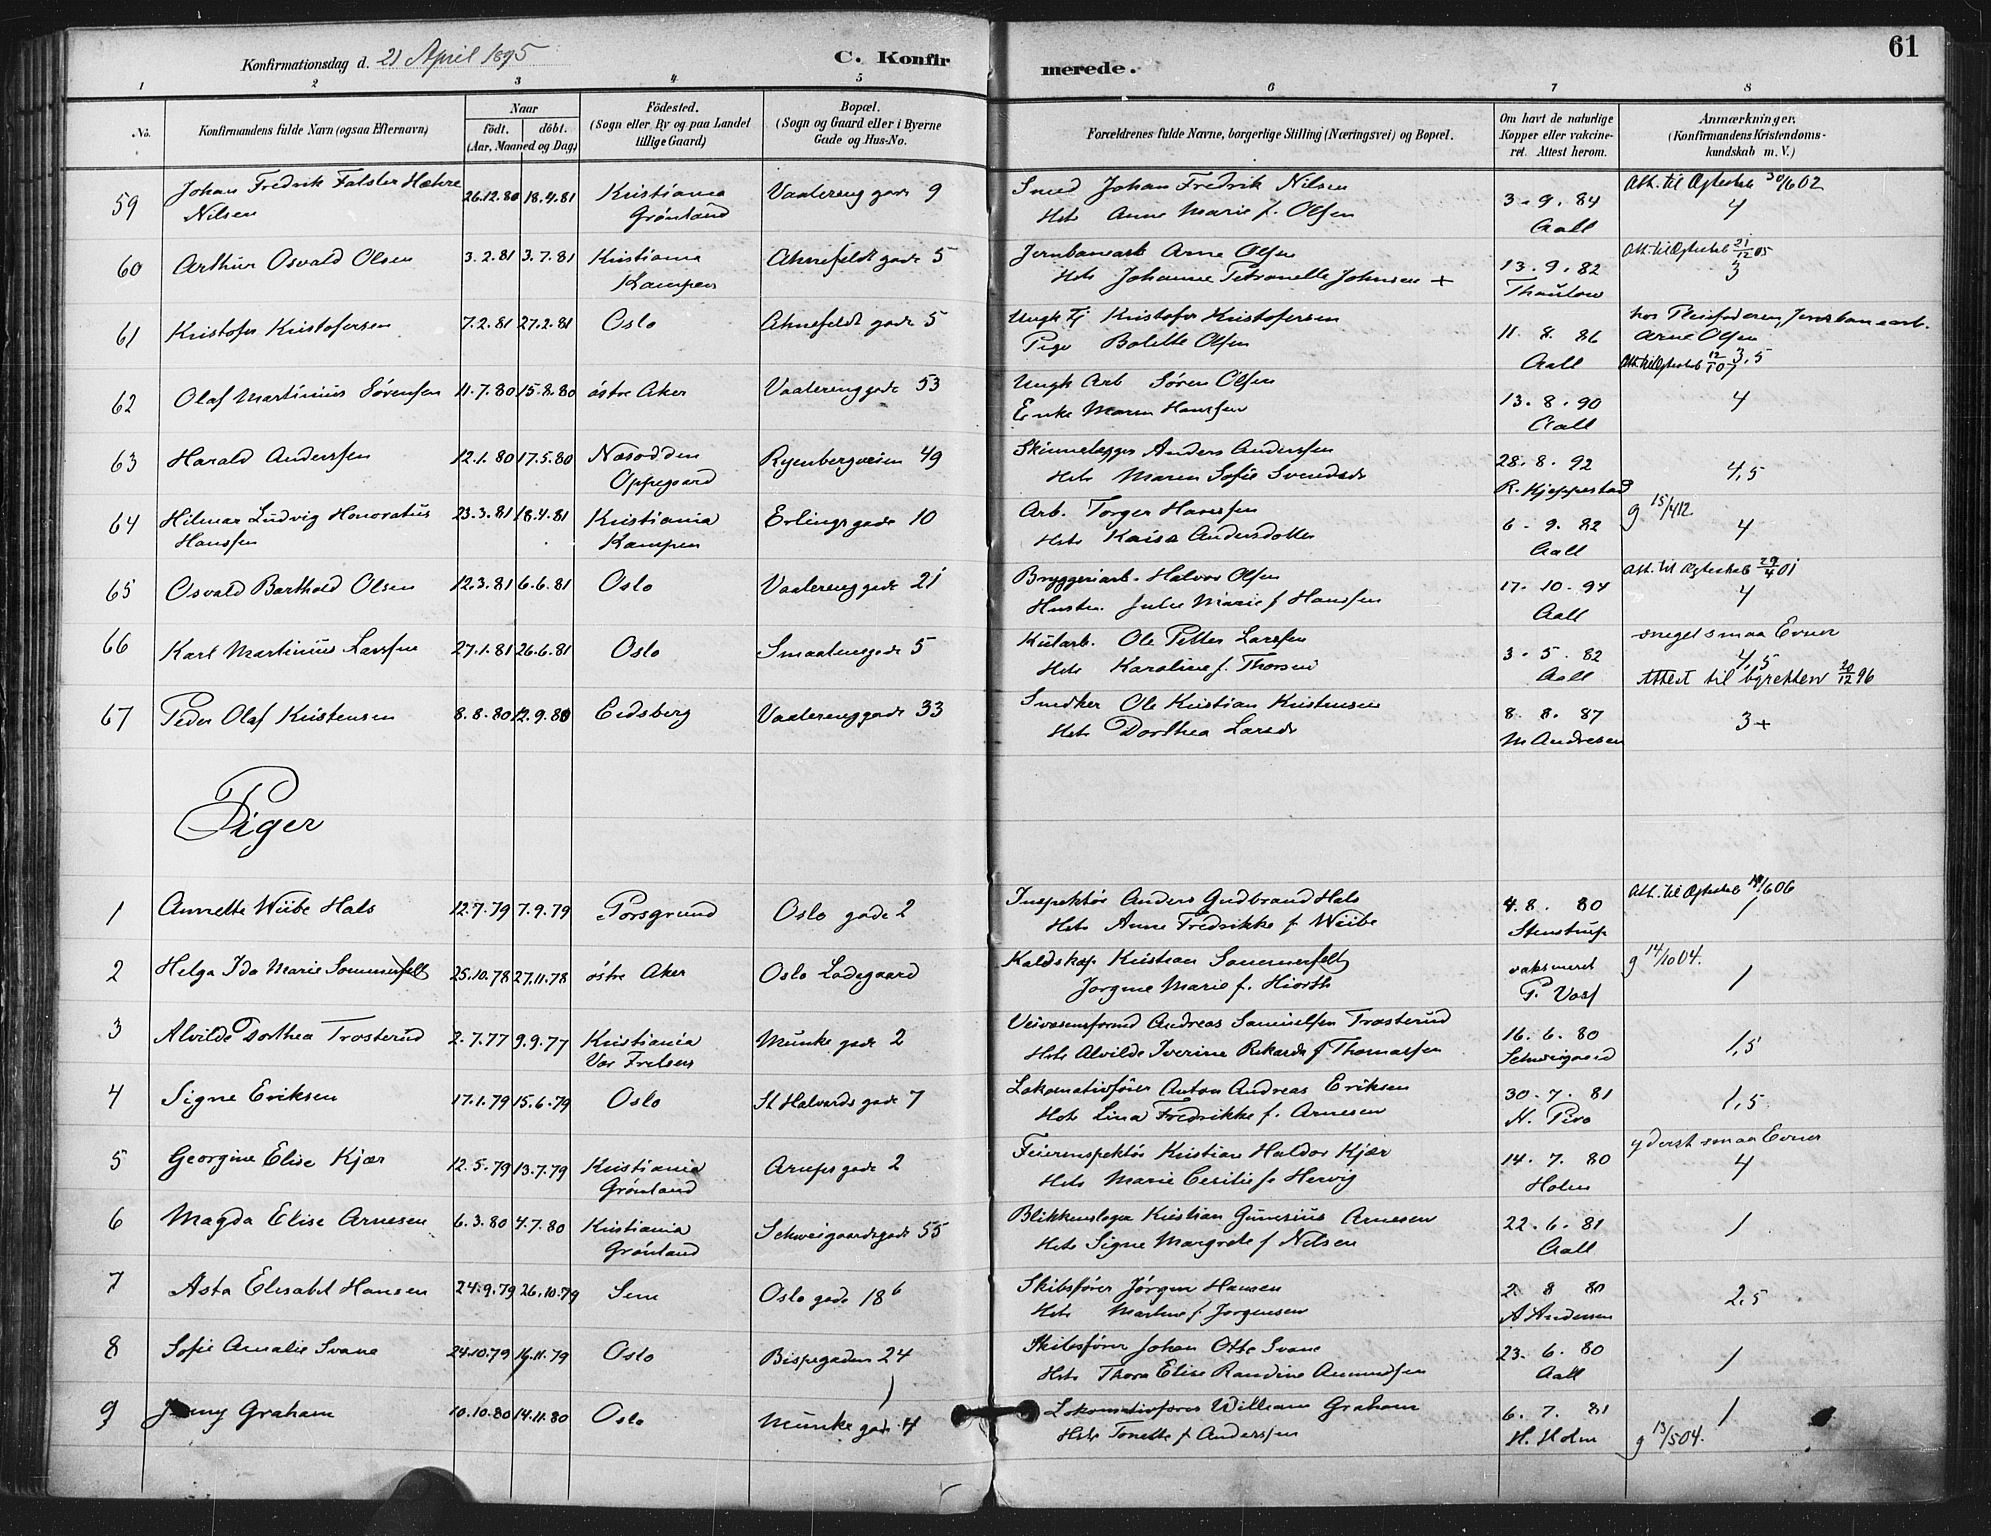 61
Konfirmationsdag d. 21 April 1895
C. Konfirmerede.
1 2 3 4 5 6 7 8
No.
Konfirmandens fulde Navn (ogsaa Efternavn)
Naar
født. døbt.
(Aar, Maaned og Dag)
Fødested.
(Sogn eller By og paa Landet
tillige Gaard)
Bopæl.
(Sogn og Gaard eller i Byerne
Gade og Hus-No.
Forældrenes fulde Navne, borgerlige Stilling (Næringsvei) og Bopæl.
Om havt de naturlige
Kopper eller vakcine-
ret. Attest herom.
Anmærkninger.
(Konfirmandens Kristendoms-
kundskab m. V.)
59 Johan Fredrik Falster Hæhre 26.12.80 18.4.81 Kristiania Vaalereng gade 9 Smed Johan Fredrik Nilsen 3.9.84 Att. til Ægteskab 30/6 02
Nilsen Grønland Hst Anne Marie f. Olsen Aall 4
60 Arthur Osvald Olsen 3.2.81 3.7.81 Kristiania Ahnefeldt gade 5 Jernbanearb Arne Olsen 13.9.82 Att. til Ægteskab 21/12 05
Kampen Hst Johanne Petronelle Johnsen + Thaulow 3
61 Kristofer Kristofersen 7.2.81 27.2.81 Oslo Ahnefeldt gade 5 Ungk Tj Kristofer Kristofersen 11.8.86 hos Pleiefaderen, Jernbanearb.
Pige Bolette Olsen Aall Arne Olsen
Att. til Ægteskab 12/10 07 3,5
62 Olaf Martinius Sørensen 11.7.80 15.8.80 østre Aker Vaalereng gade 53 Ungk Arb Søren Olsen 13.8.90 4
Enke Maren Hansen Aall
63 Harald Anderssen 12.1.80 17.5.80 Næsodden Ryenbergveien 49 Skinnelægger Anders Anderssen 28.8.92 4,5
Oppegaard Hst Maren Sofie Svendsdr R. Kjeppestad
64 Hilmar Ludvig Honoratus 23.3.81 18.4.81 Kristiania Erlings gade 10 Arb. Torger Hanssen 6.9.82 g 15/4 12
Hanssen Kampen Hst Kaisa Andersdotter Aall 4
65 Osvald Barthold Olsen 12.3.81 6.6.81 Oslo Vaalereng gade 21 Bryggeriarb. Halvor Olsen 17.10.94 Att. til Ægteskab 29/4 01
Hustru Julie Marie f Hanssen Aall 4
66 Karl Martinius Larssen 27.1.81 26.6.81 Oslo Smaalensgade 5 Kularb. Ole Petter Larssen 3.5.82 meget smaa Evner
Hst Karoline f. Thorsen Aall 4,5
Attest til byretten 20/12 96
67 Peder Olaf Kristensen 8.8.80 12.9.80 Eidsberg Vaalereng gade 33 Snedker Ole Kristian Kristensen 8.8.87 3+
Hst Dorthea Larsdr M Andresen
Piger
1 Annette Wiibe Hals 12.7.79 7.9.79 Porsgrund Oslo gade 2 Inspektør Anders Gudbrand Hals 4.8.80 Att. til Ægteskab 14/6 06
Hst Anne Fredrikke f Wiibe Stenstrup 1
2 Helga Ida Marie Sommerfelt 25.10.78 27.11.78 østre Aker Oslo Ladegaard Kaldskap. Kristian Sommerfelt vaksineret g 14/10 04.
Jørgine Marie f. Hiorth P. Voss 1
3 Alvilde Dorthea Trosterud 2.7.77 9.9.77 Kristiania Munke gade 2 Veivæsensformd Andreas Samuelsen Trosterud 16.6.80 1,5
Vor Frelsers Hst Alvilde Iverine Rikarda f Thomassen Schweigaard
4 Signe Eriksen 17.1.79 15.6.79 Oslo St Halvards gade 7 Lokomotivfører Anton Andreas Eriksen 30.7.81 1,5
Hst Lina Fredrikke f. Arnesen N.
5 Georgine Elise Kjær 12.5.79 13.7.79 Kristiania Arups gade 2 Feierinspektør Kristian Haldor Kjær 14.7.80 yderst smaa Evner
Grønland Hst Marie Cecilie f Hervig Holm 4
6 Magda Elise Arnesen 6.3.80 4.7.80 Kristiania Schweigaardsgade 55 Blikkenslager Kristian Gunerius Arnesen 22.6.81 1
Grønland Hst Signe Margrete f Nilsen Aall
7 Asta Elisabet Hansen 24.9.79 26.10.79 Sem Oslo gade 18 b Skibsfører Jørgen Hansen 2.8 80 2,5
Hst Martine f. Jørgensen A Andersen
8 Sofie Amalie Svane 24.10.79 16.11.79 Oslo Bispegaden 24 Skibsfører Johan Otto Svane 23.6.80 1
Hst Thora Elise Randine Amundsen Aall
9 Jenny Graham 10.10.80 14.11.80 Oslo Munke gade 4 Lokomotivfører William Graham 6.7.81 1
Hst Tonette f Anderssen H. Holm g 13/5 04.